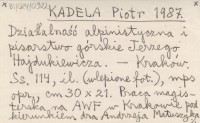 KADELA Piotr 1987.
Działalność alpinistyczna i
pisarstwo górskie Jerzego
Hajdukiewicza. — Kraków.
Ss. 114, il. (wlepione fot.), mps
opr., cm 30 x 21. Praca magis-
terska na AWF w Krakowie pod
kierunkiem dra Andrzeja Matuszyka